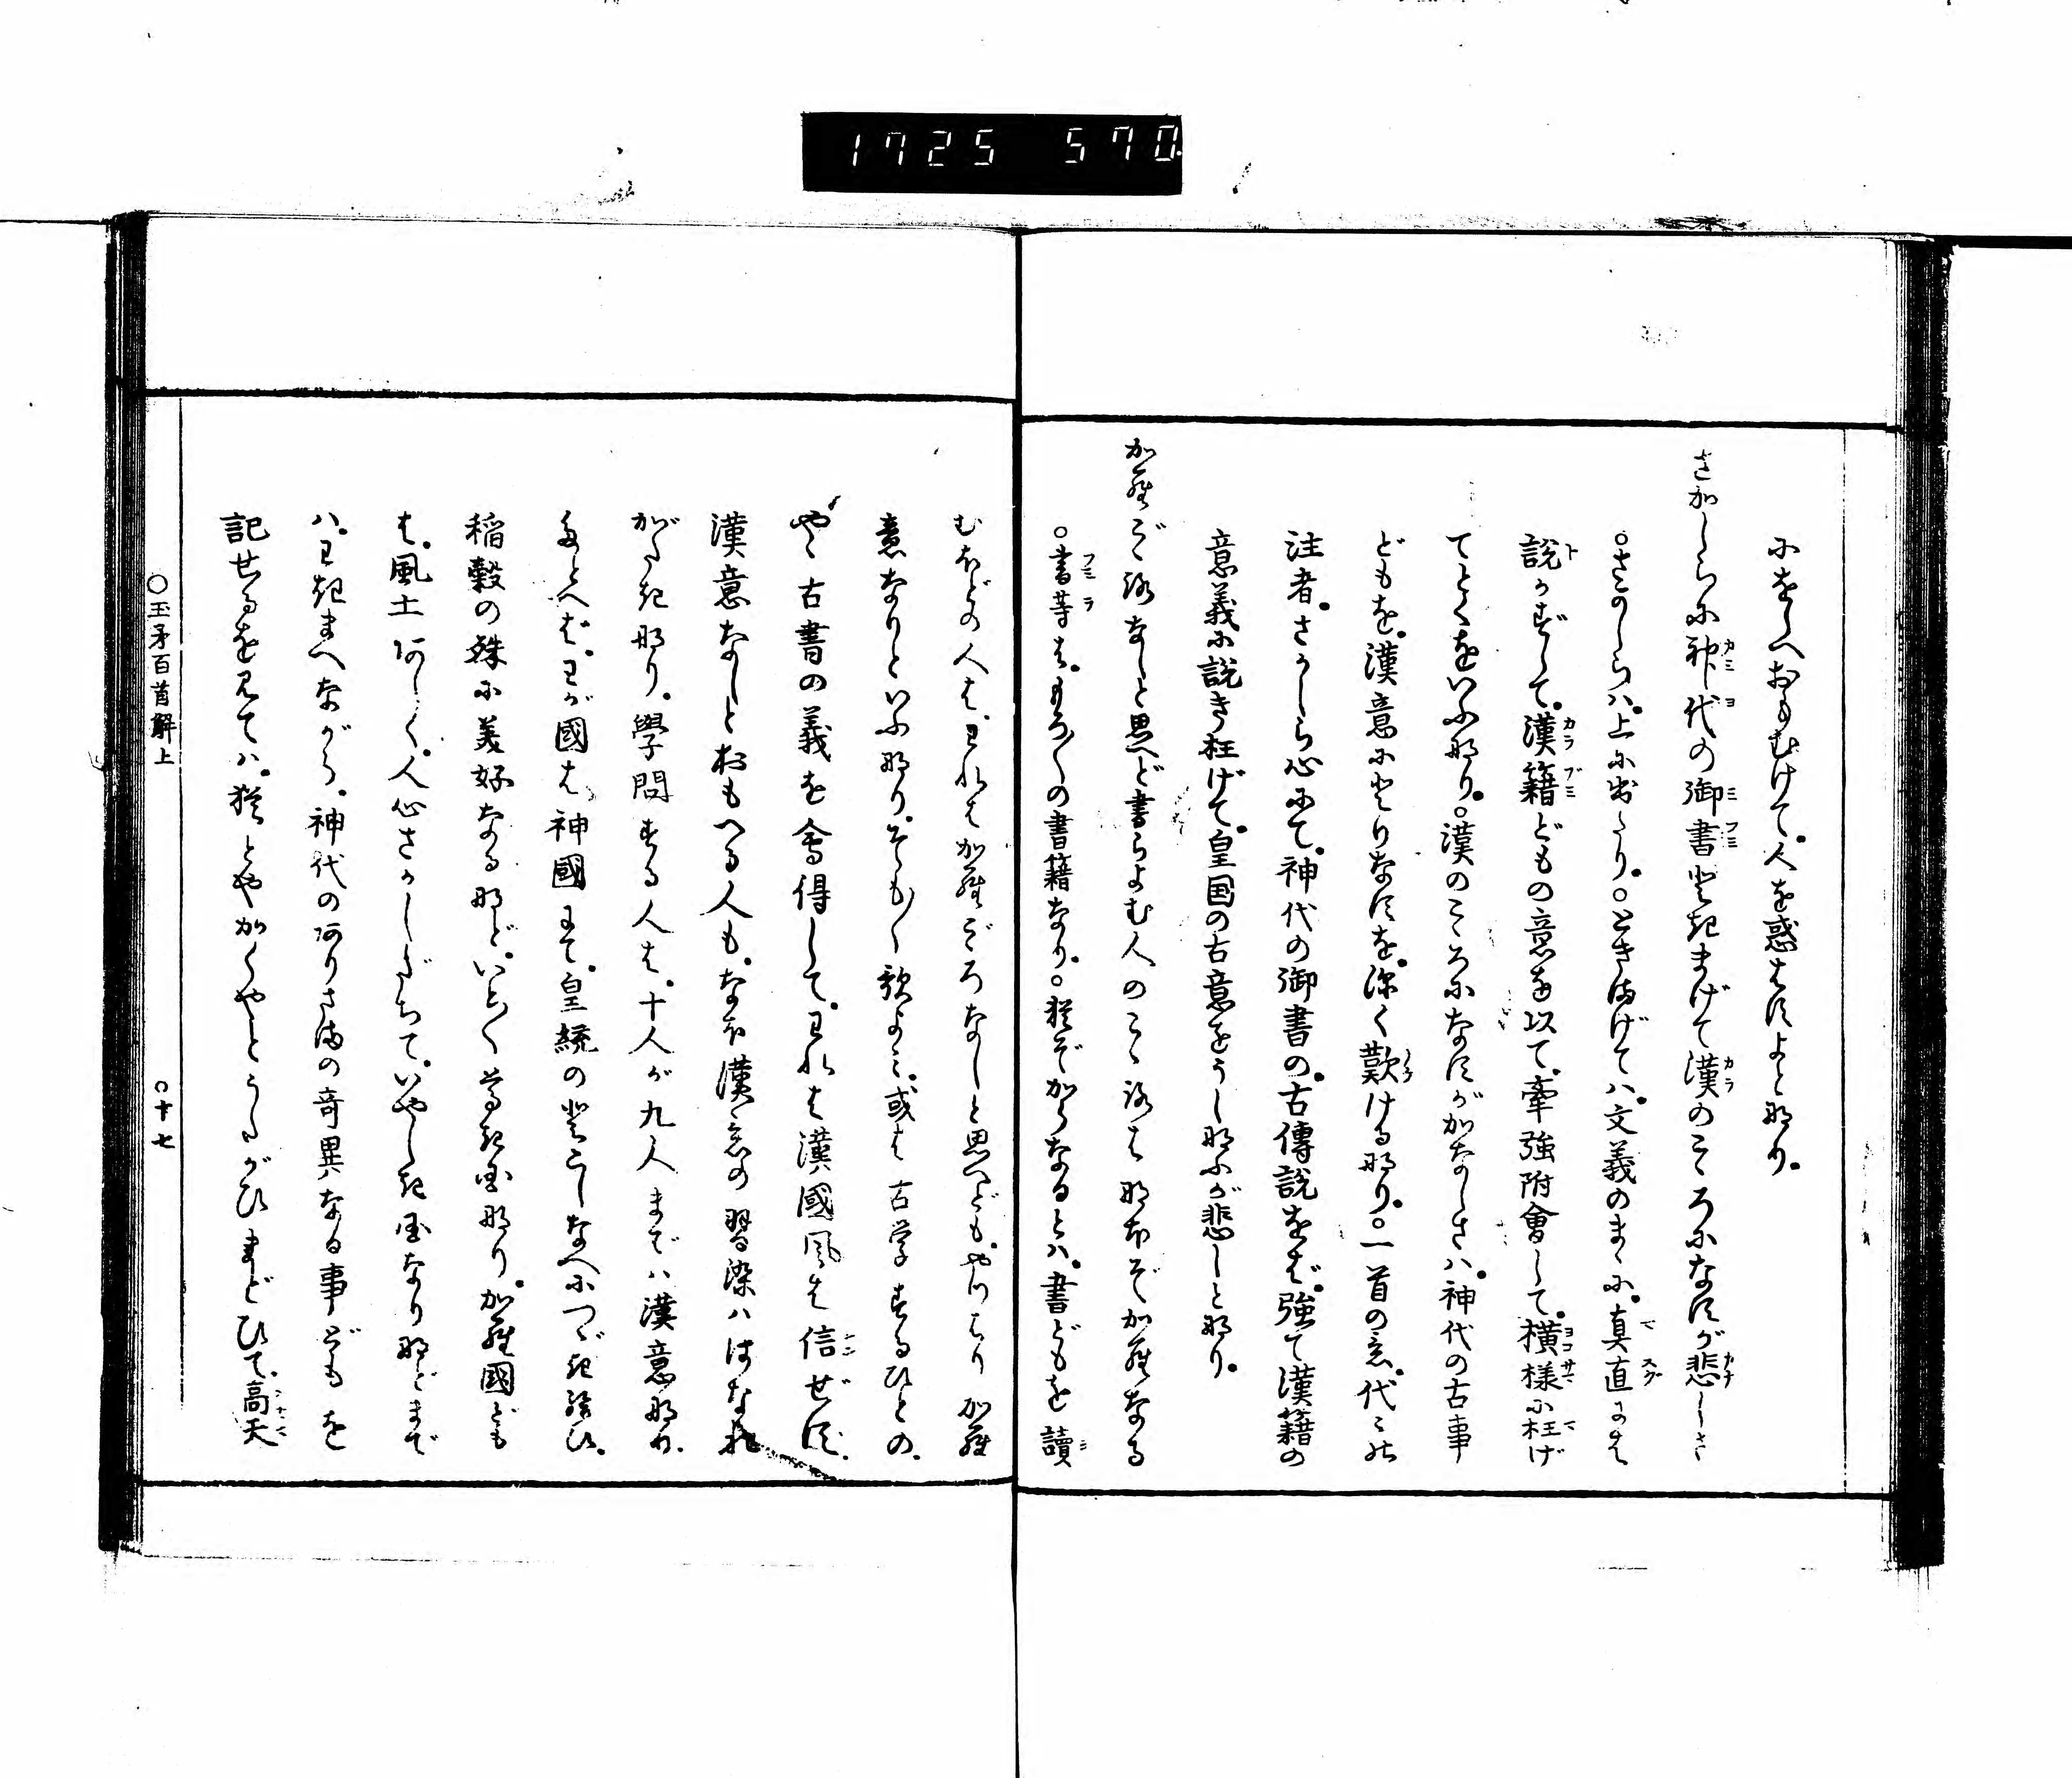 1725 570.
にをしへおもむけて。人を惑はすよと也。
さかしらに神代の御書ときまげて漢のこゝろになすが悲しさ
○さかしらハ。上に出たり。○ときまげてハ。文義のまゝに。真直には
説かずして。漢籍どもの意を以て。牽強附會して。横様に枉げ
てとくをいふ也。○漢のこゝろになすがかなしさハ。神代の古事
どもを。漢意にとりなすを。深く歎ける也。○一首の意。代々の
注者。さかしら心にて。神代の御書の。古傳説をば。強て漢籍の
意義に説き枉げて。皇国の古意をうしなふが悲しと也。
加羅ごゝろなしと思へど書らよむ人のこゝろはなほぞ加羅なる
○書等は。もろ〳〵の書籍なり。○猶ぞからなるとハ。書どもを讀
むほどの人は。われは加羅ごゝろなしと思へども。やつはり加羅
意なりといふ也。そも〳〵歌よみ。或は古学するひとの。
やゝ古書の義を會得して。われは漢國風を信ぜず。
漢意なしとおもへる人も。なほ漢意の習染ハはなれ
がたき也。學問する人は。十人が九人までハ漢意也。
たとへば。わが國は神國にて。皇統のとこしなへにつゞき給ひ。
稲穀の殊に美好なるなど。いと〳〵尊き国なり。加羅國ども
は。風土あしく。人心さかしだちて。いやしき国なりなどまで
ハ。わきまへながら。神代のありさまの奇異なる事どもを
記せるを見てハ。猶とやかくやとうたがひまどひて。高天
○玉矛百首解上　○十七